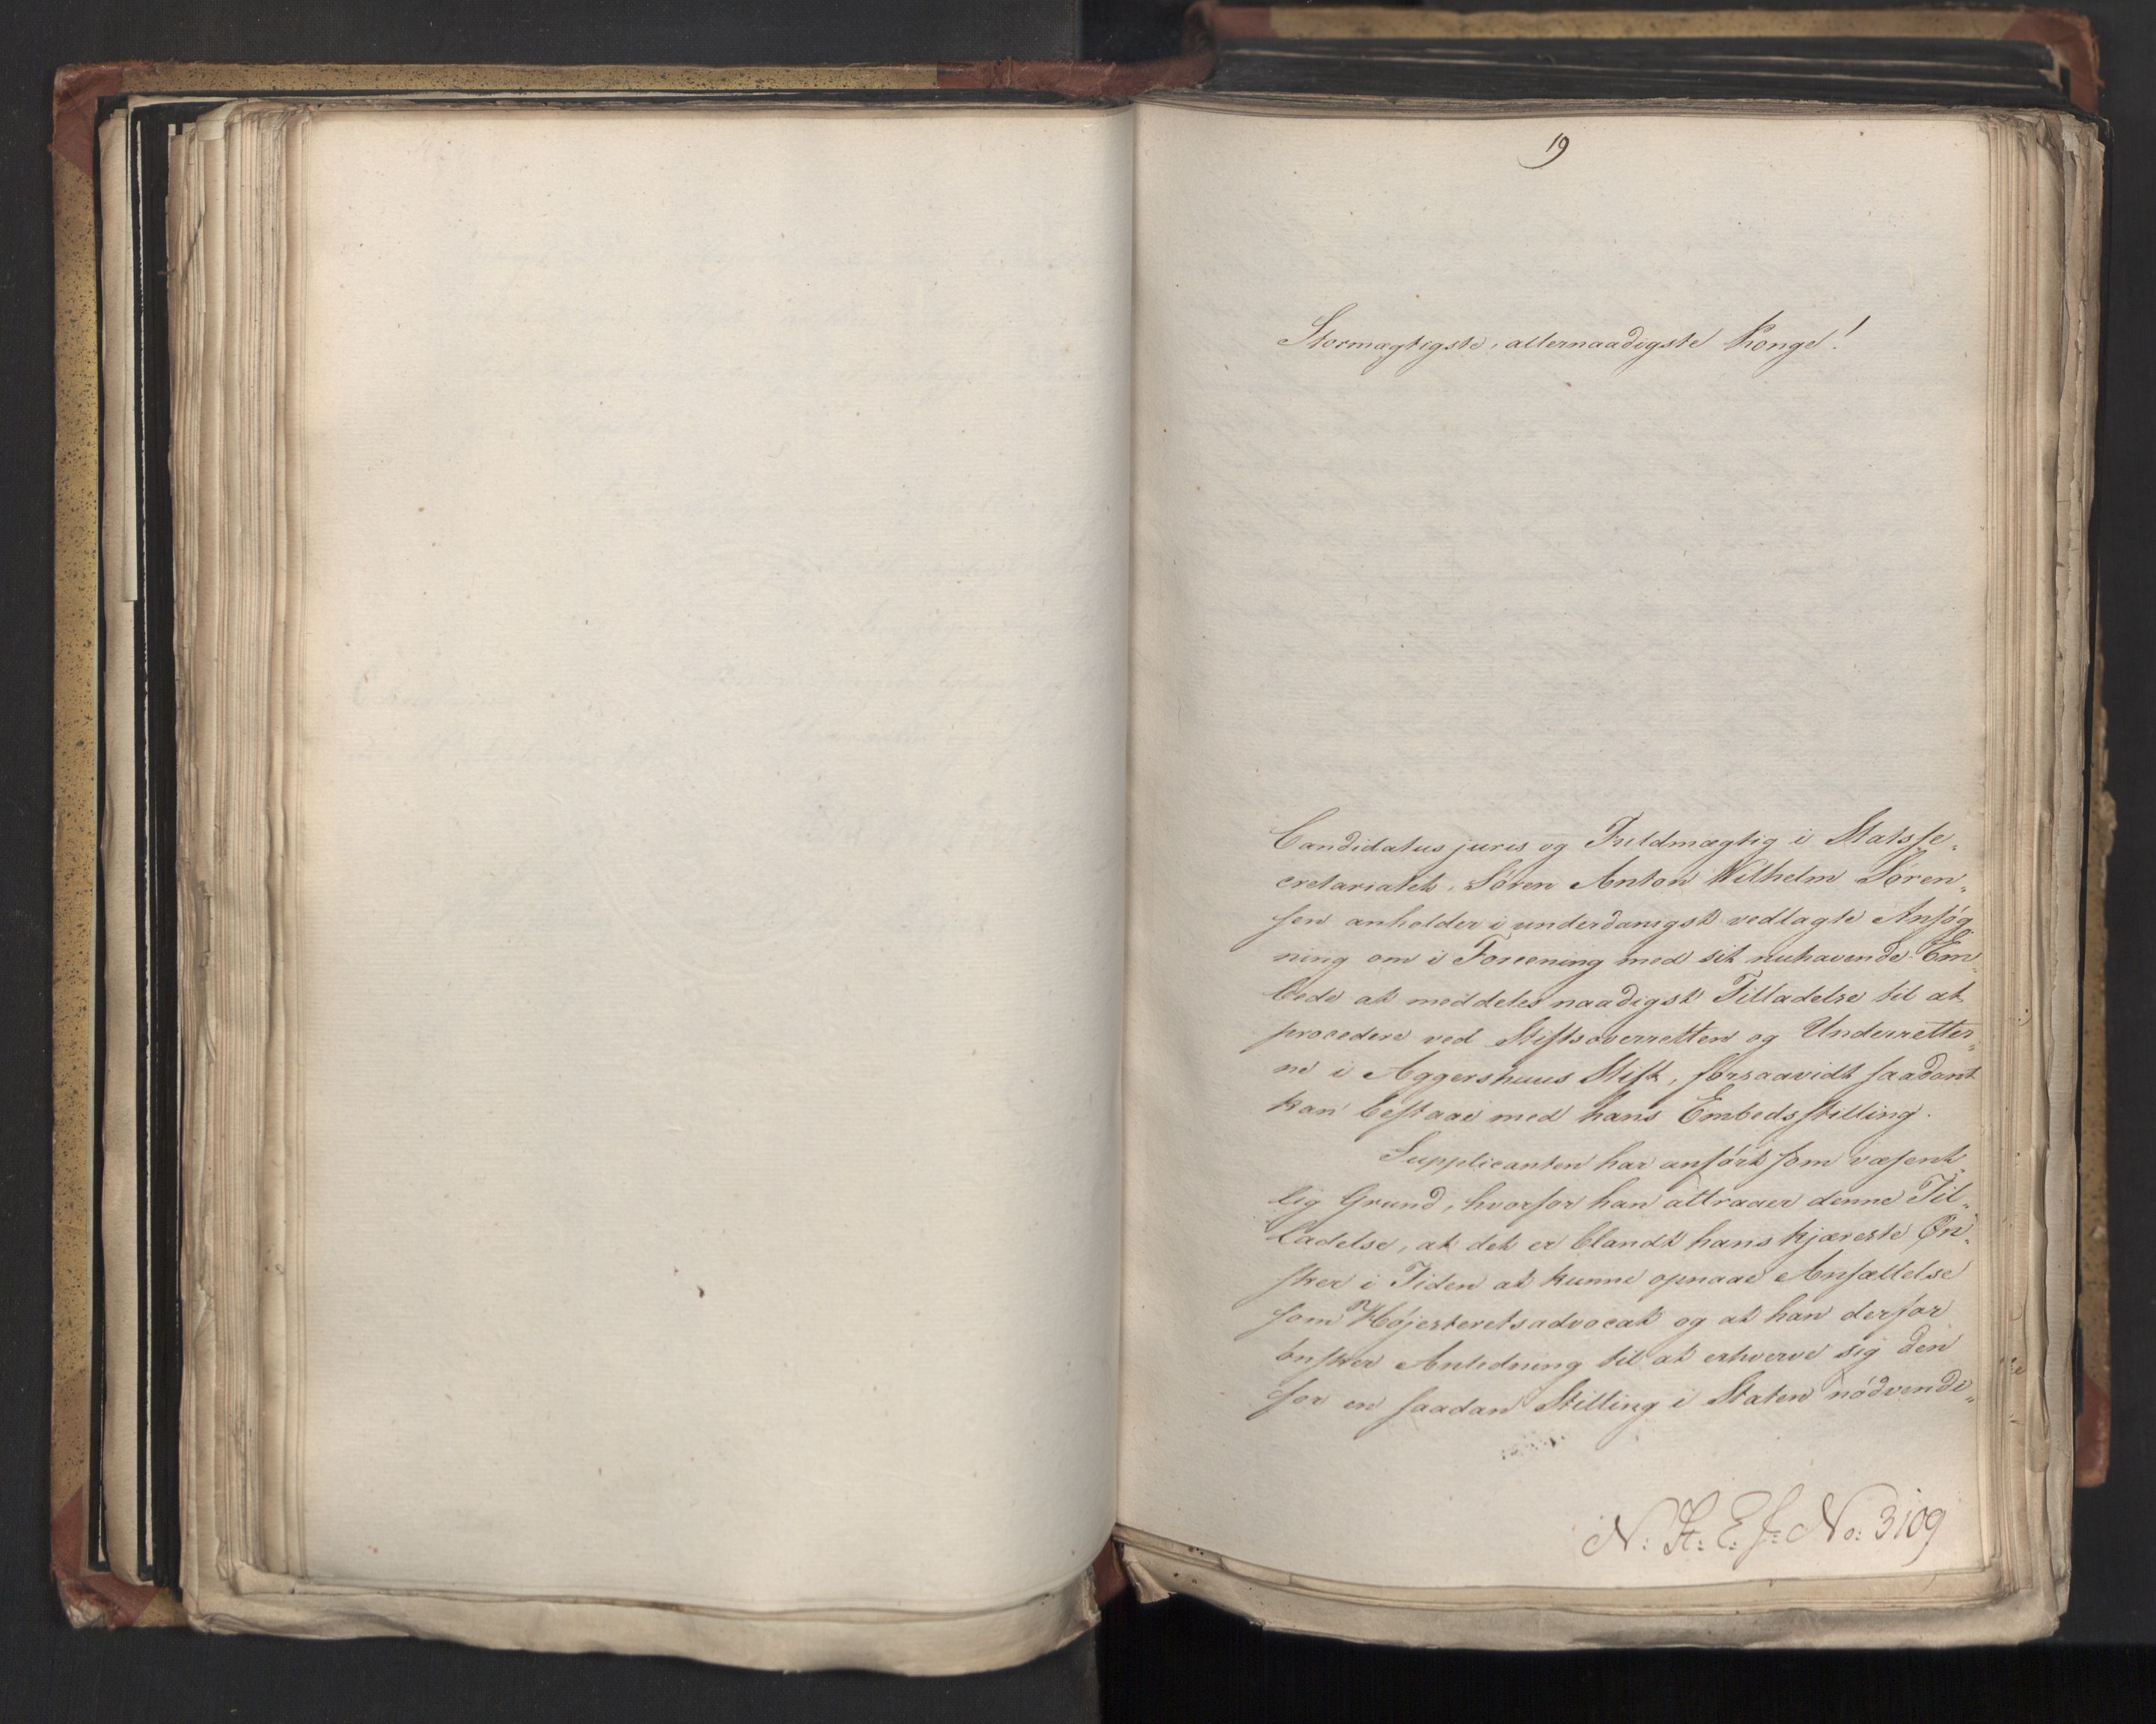 19
Stormægtigste, allernaadigste Konge!
Candidatus juris og Fuldmægtig i Statsse„
cretariatet, Søren Anton Wilhelm Søren„
sen anholder i underdanigst vedlagte Ansøg„
ning om i Forening med sit nuhavende Em„
bede at meddeles naadigst Tilladelse til at
procedere ved Stiftsoverretten og Underretter„
ne i Aggershuus Stift, forsaavidt saadant
kan bestaae med hans Embedsstilling.
Supplicanten har anført som væsent„
lig Grund, hvorfor han attraaer denne Til„
ladelse, at det er blandt hans kjæreste Øn„
sker i Tiden at kunne opnaae Ansættelse
som Høiesteretsadvocat og at han derfor
ønsker Anledning til at erhverve sig den
for en saadan Stilling i Staten nødvendi„
N: St: E: J: No: 3109